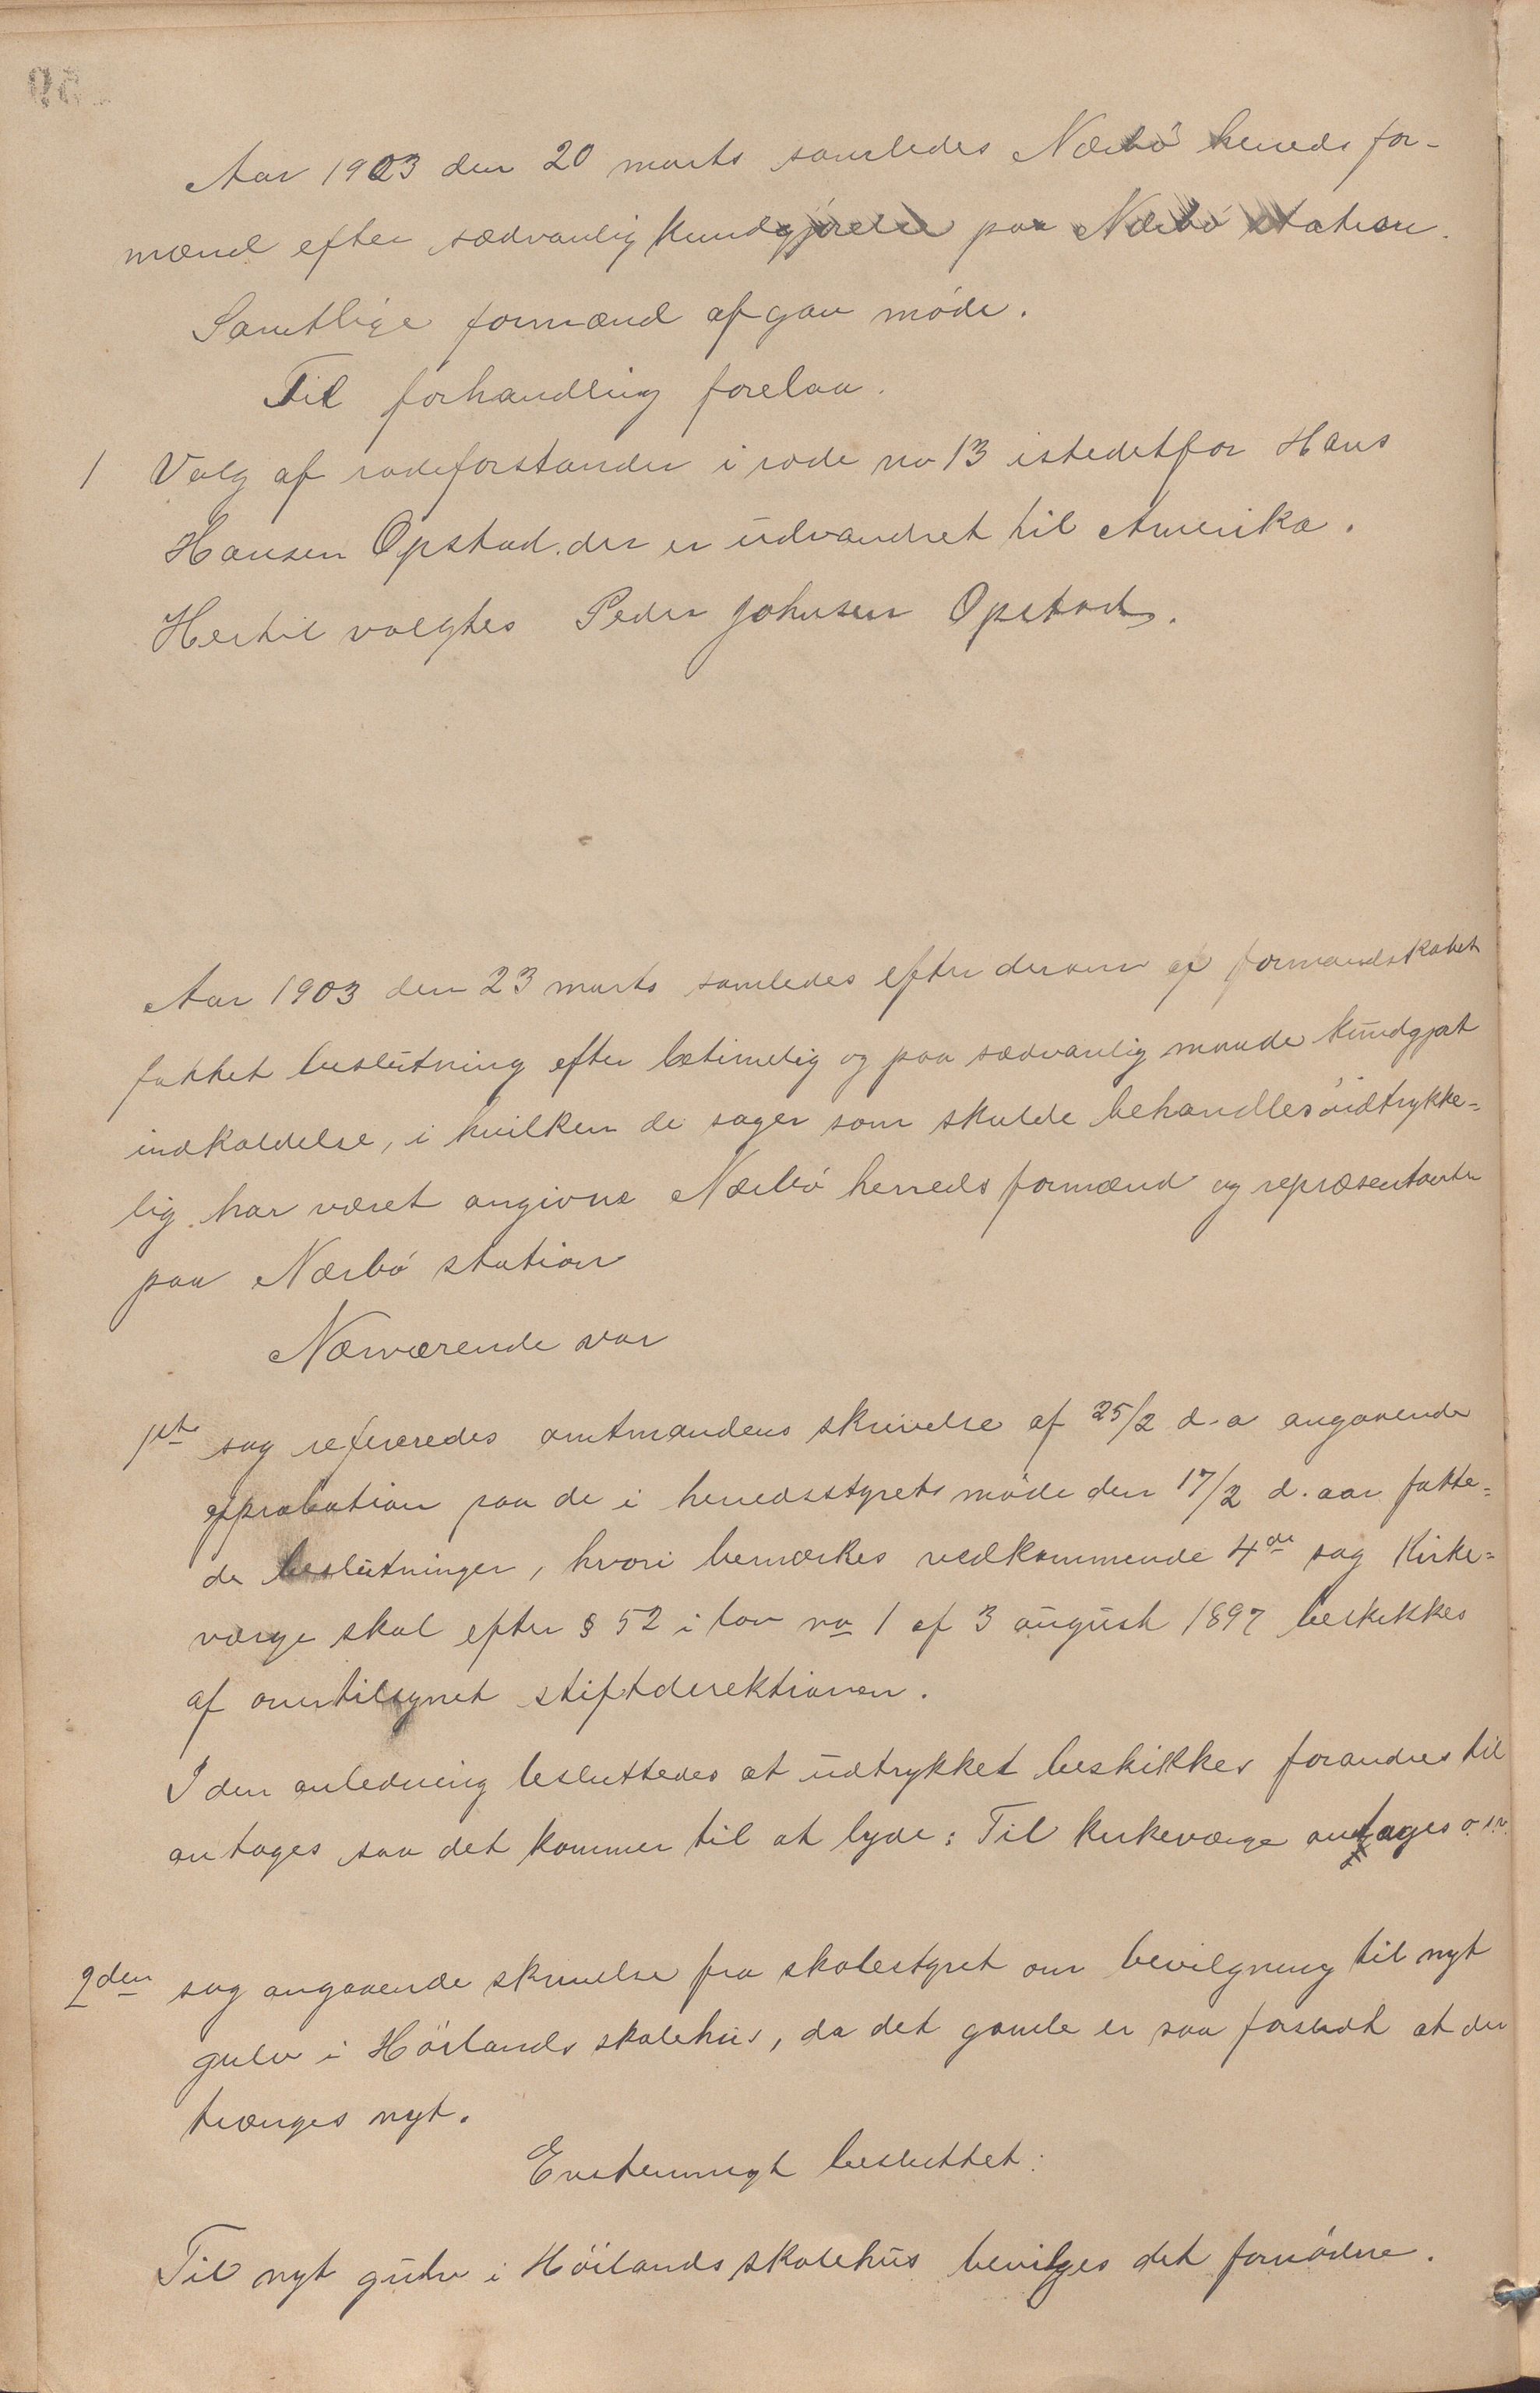 Aar 1903 den 20 marts samledes Nærbö herreds for-
mænd efter sædvanlig kundgjörelse paa Nærbö station.
Samtlige formænd afgav möde.
Til forhandling forelaa.
1 Valg af rodeforstander i rode no 13 istedetfor Hans
Hansen Opstad. der er udvandret til Amerika.
Hertil valgtes Peder Johnsen Opstad.
Aar 1903 den 23 marts samledes efter derom af formandskabet
fattet beslutning efter betimelig og paa sædvanlig maade kundgjort
indkaldelse, i hvilken de sager som skulde behandles udtrykke=
lig har været angivne Nærbö herreds formænd og repræsentanter
paa Nærbö station
Nærværende var
1ste sag refereredes amtmandens skrivelse af 25/2 d.a angaaende
approbation paa de i herredsstyrets möde den 17/2 d. aar fatte=
de beslutninger, hvori bemærkes vedkommende 4de sag Kirke=
værge skal efter § 52 i lov no 1 af 3 august 1897 beskikkes
af overtilsynet stiftdirektionen.
I den anledning besluttedes at udtrykket beskikkes forandres til
antages saa det kommer til at lyde: Til kirkeværge antages o.s.v.
2den sag angaaende skrivelse fra skolestyret om bevilgning til nyt
gulv i Höilands skolehus, da det gamle er saa forslidt at der
trænges nyt.
Enstemmigt besluttet:
Til nyt gulv i Höilands skolehus bevilges det fornödne.